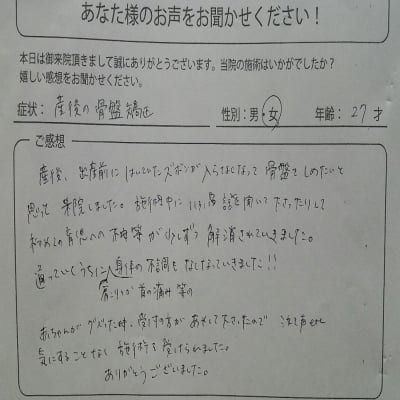 あなた様のお声をお聞かせください！
本日は御来院頂きまして誠にありがとうございます。当院の施術はいかがでしたか？
嬉しい感想をお聞かせください。
症状： 産後の骨盤矯正 性別：男・女 年齢： 27 才
ご感想
産後、出産前にはいていたズボンが入らなくなって骨盤をしめたいと
思って 来院しました。施術中に いろいろ話を聞いて下さったりして
初めての育児への不安等が少しずつ 解消されていきました。
通っていくうちに身体の不調もなくなっていきました!!
肩こりや首の痛み等の
赤ちゃんがグズった時、受付の方があやして下さったので 泣き声とか
気にすることなく 施術を受けられました。
ありがとうございました。